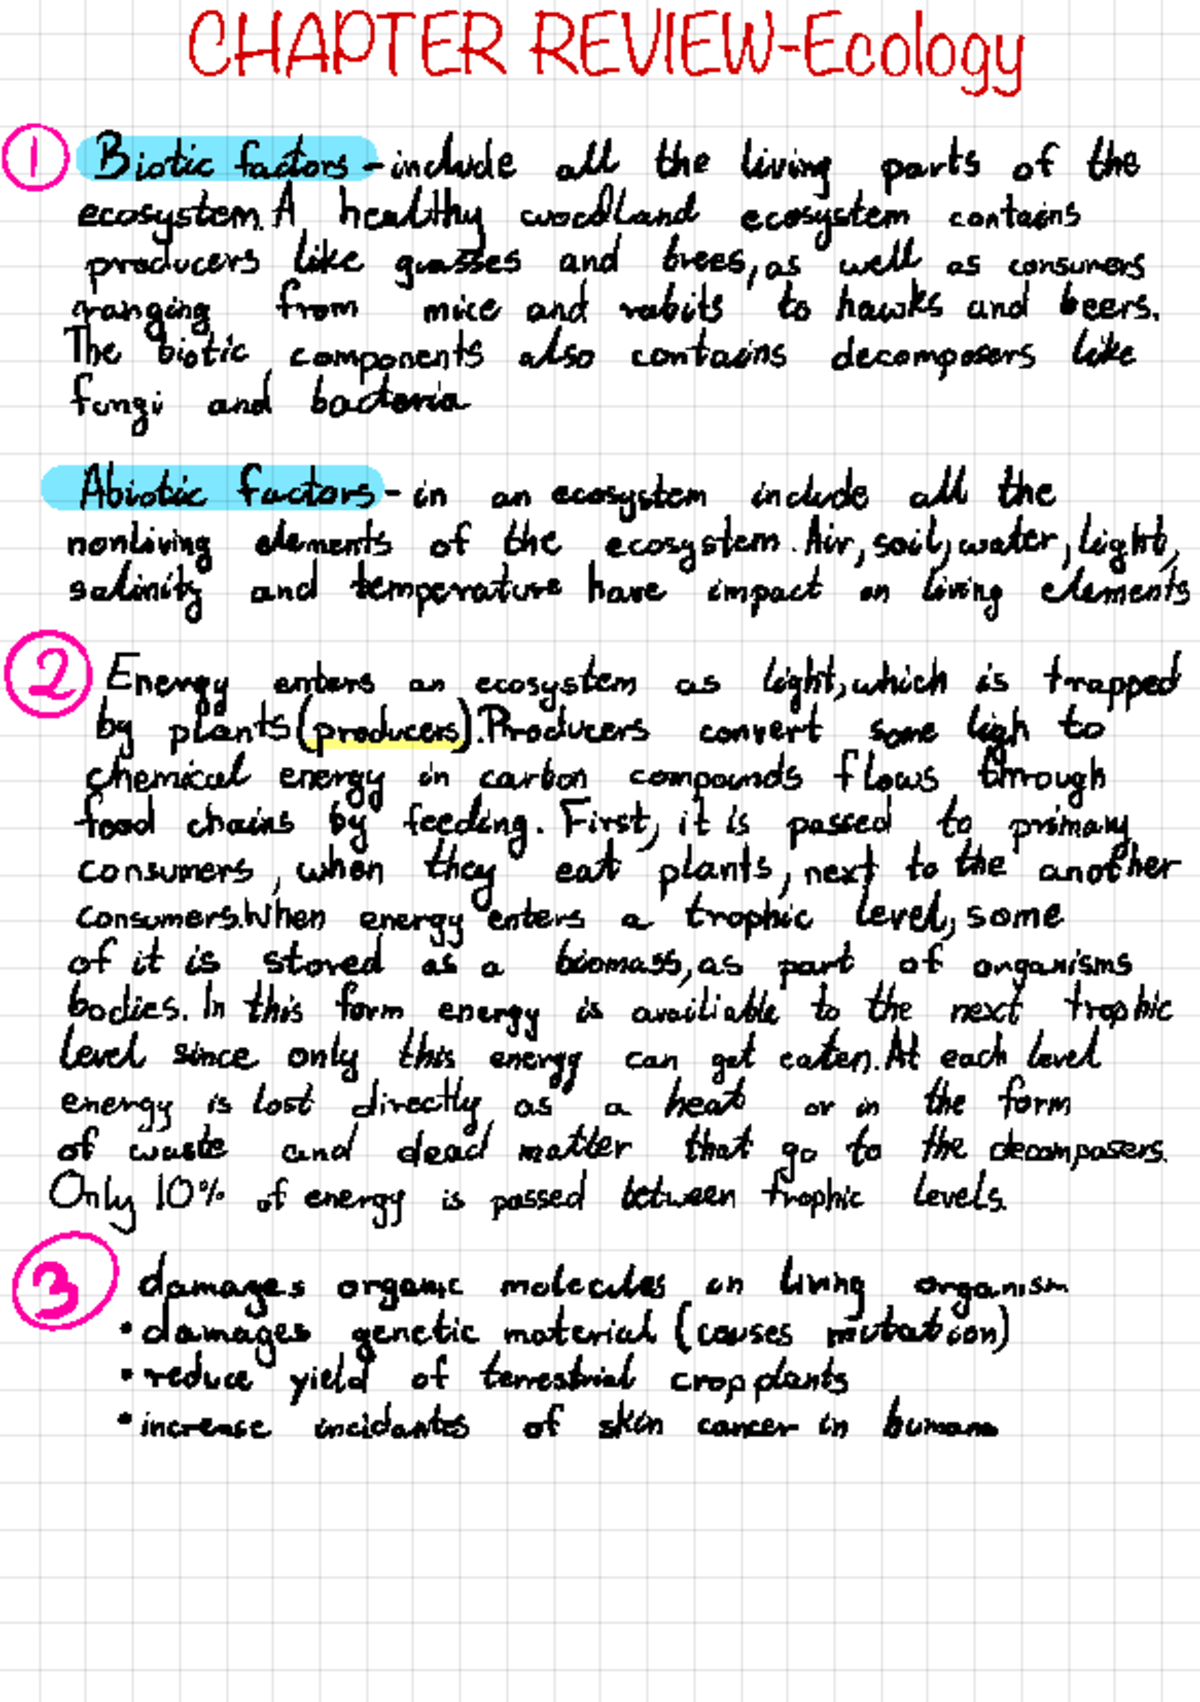 CHAPTER REVIEW-Ecology
1 Biotic factors - include all the living parts of the
ecosystem. A healthy woodland ecosystem contains
producers like grasses and trees, as well as consumers
ranging from mice and rabits to hawks and beers.
The biotic components also contains decomposers like
fungi and bacteria
Abiotic factors - in an ecosystem include all the
nonliving elements of the ecosystem. Air, soil, water, light,
salinity and temperature have impact on living elements
2 Energy enters an ecosystem as light, which is trapped
by plants (producers). Producers convert some ligh to
chemical energy in carbon compounds flows through
food chains by feeding. First, it is passed to primary
consumers, when they eat plants, next to the another
consumers. When energy enters a trophic level, some
of it is stored as a biomass, as part of organisms
bodies. In this form energy is availiable to the next trophic
level since only this energy can get eaten. At each level
energy is lost directly as a heat or in the form
of waste and dead matter that go to the decomposers.
Only 10% of energy is passed between trophic levels.
3 damages organic molecules in living organism
• damages genetic material (causes mutation)
• reduce yield of terrestrial crop plants
• increase incidantes of skin cancer in humans